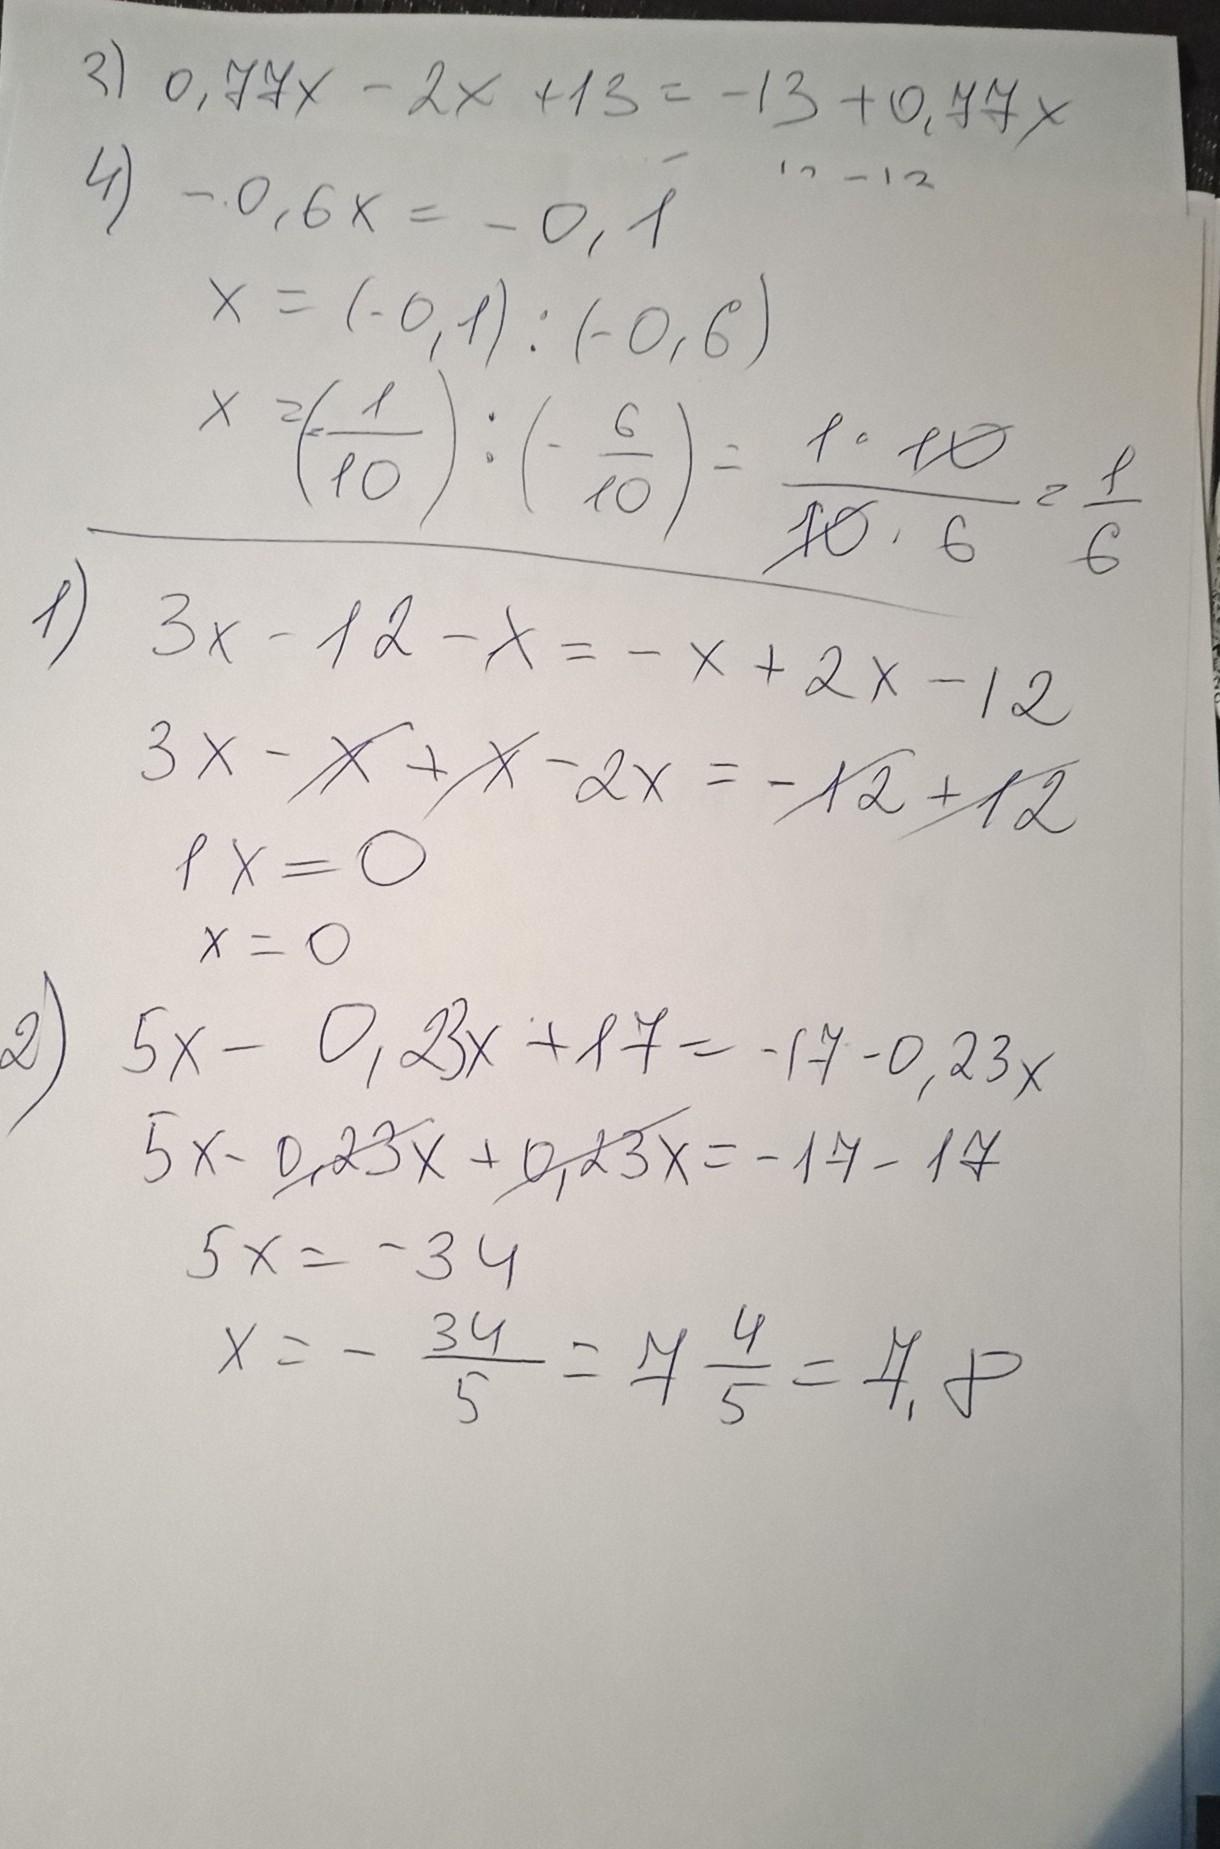 3) 0,77x - 2x + 13 = -13 + 0,77x
4) -0,6x = -0,1
x = (-0,1) : (-0,6)
x = (-1/10) : (-6/10) = 1·10/10·6 = 1/6
1) 3x - 12 - x = - x + 2x - 12
3x - x + x - 2x = -12 + 12
1x = 0
x = 0
2) 5x - 0,23x + 17 = -17 - 0,23x
5x - 0,23x + 0,23x = -17 - 17
5x = -34
x = - 34/5 = 7 4/5 = 7,8